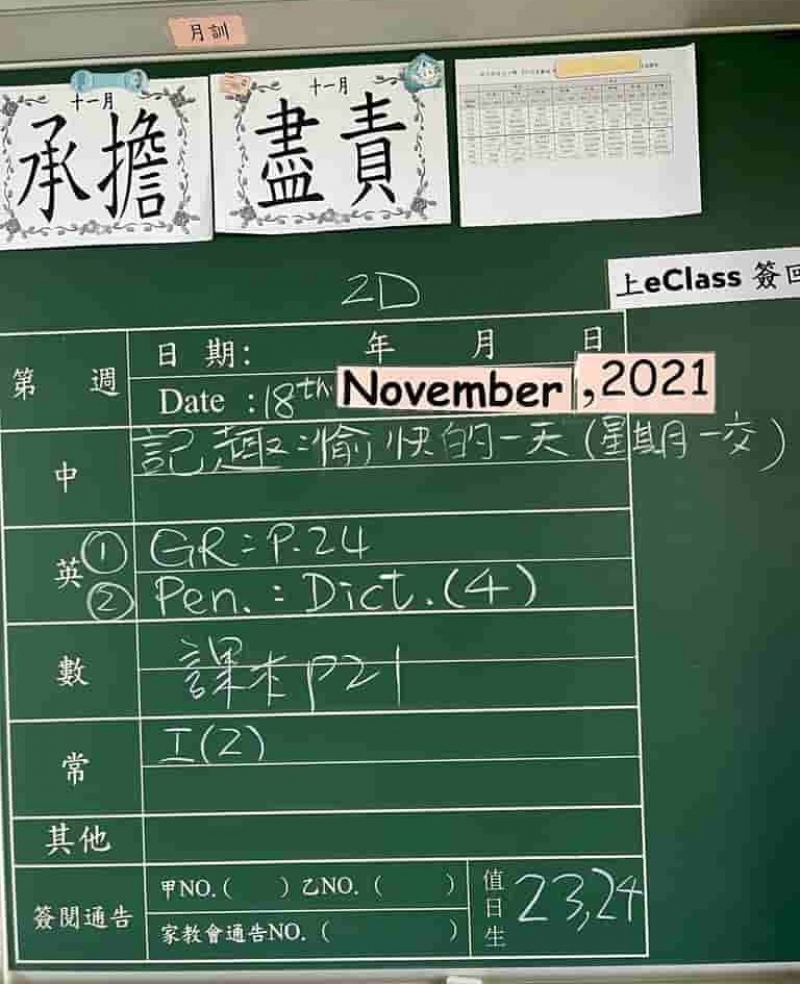 月訓
十一月
承擔
十一月
盡責
2D
上eClass 簽回
第 週
日期: 年 月 日
Date :18th November ,2021
中
記趣:愉快的一天(星期一交)
英
① GR:P.24
② Pen.:Dict.(4)
數
課本p21
常
I(2)
其他
簽閱通告
甲NO.( ) 乙NO.( )
家教會通告NO.( )
值日生
23,24